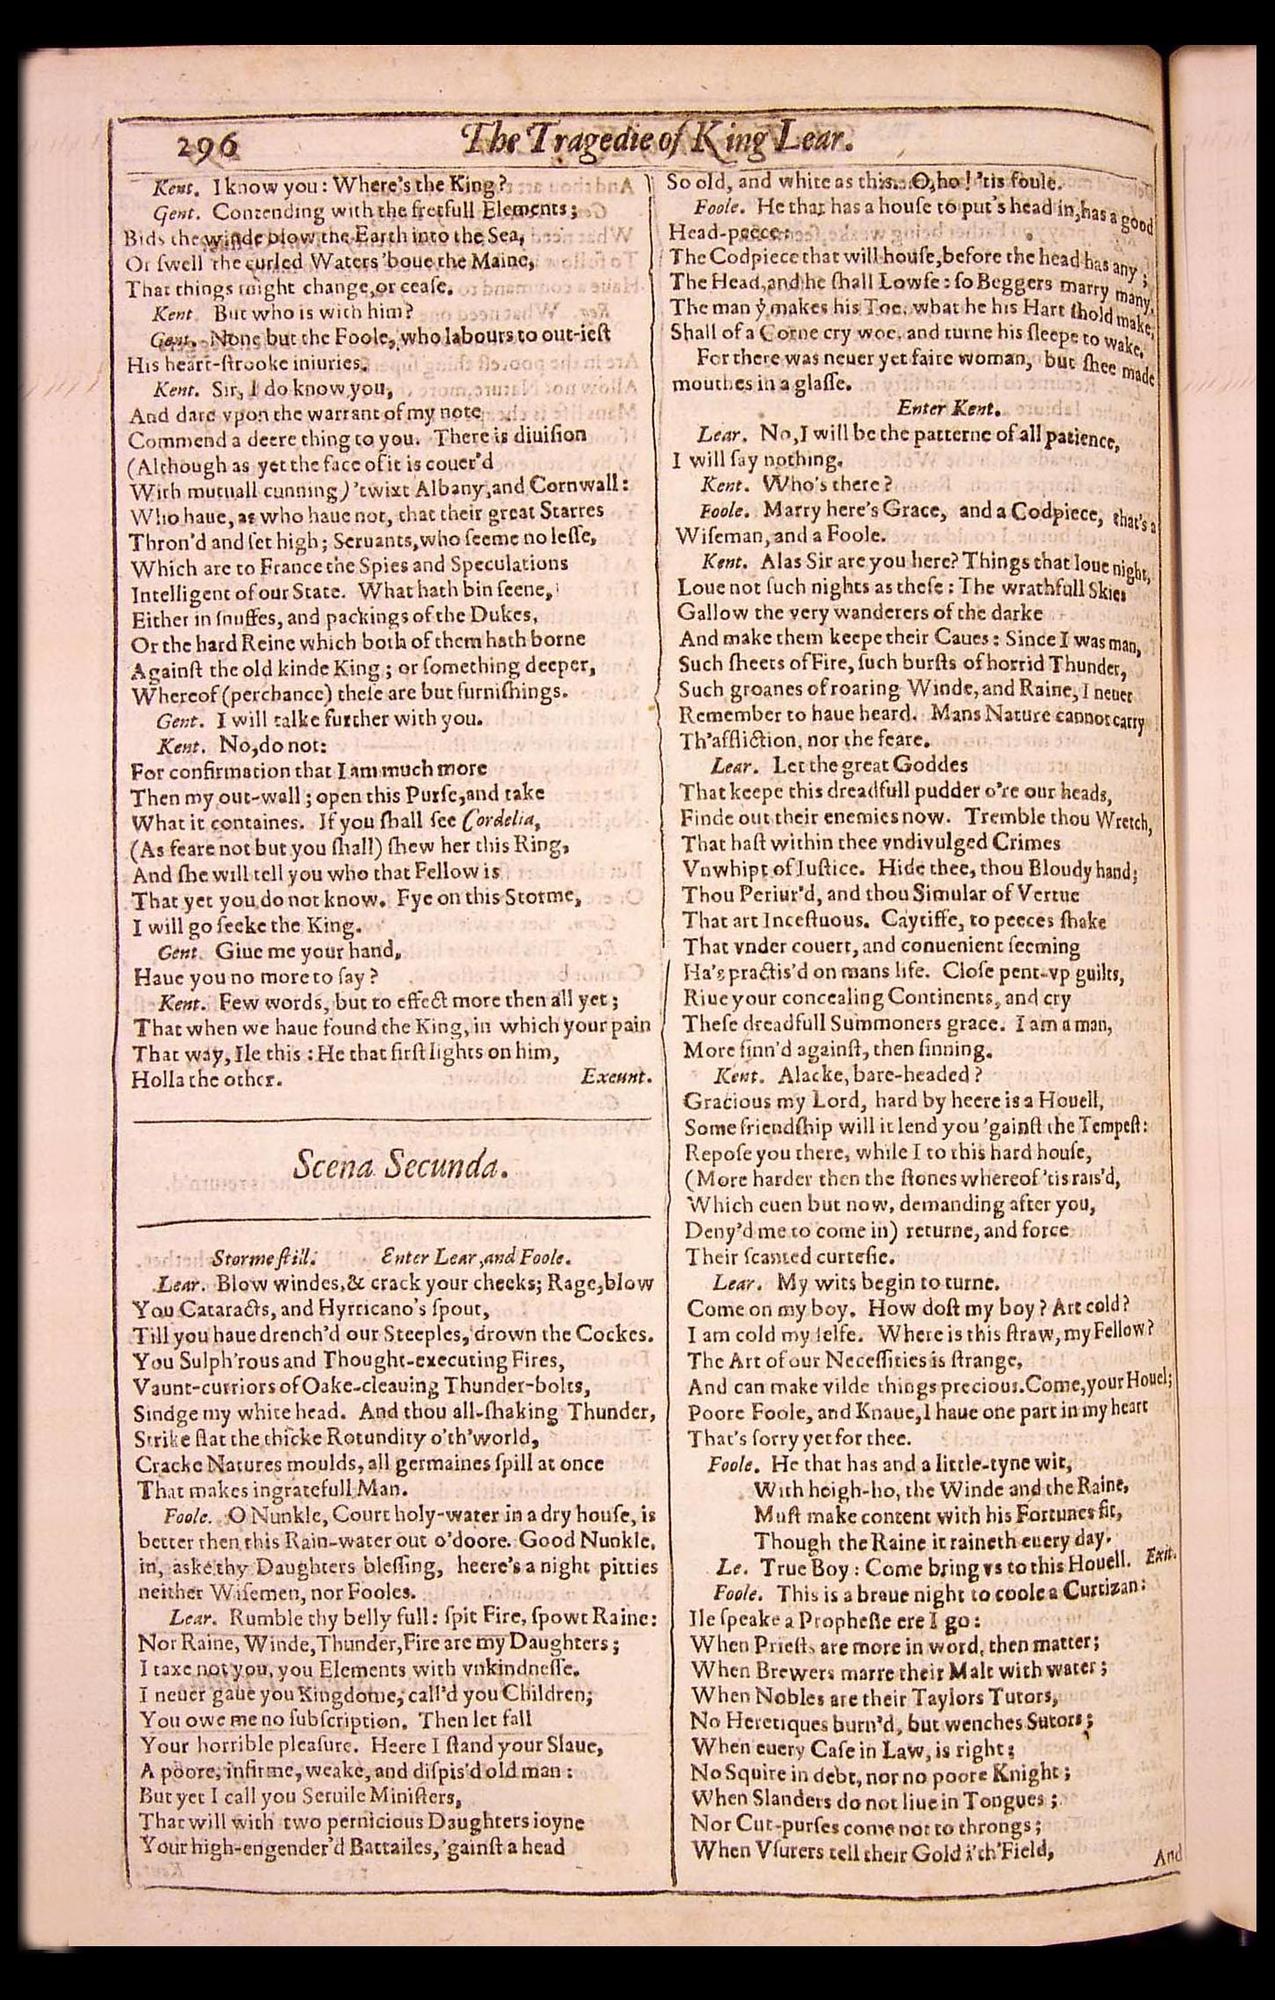 296
The Tragedie of King Lear.
Kent. I know you: Where's the King?
Gent. Contending with the fretfull Elements;
Bids the winde blow the Earth into the Sea,
Or swell the curled Waters 'boue the Maine,
That things might change, or cease.
Kent. But who is with him?
Gent. None but the Foole, who labours to out-iest
His heart-strooke iniuries.
Kent. Sir, I do know you,
And dare vpon the warrant of my note
Commend a deere thing to you. There is diuision
(Although as yet the face of it is couer'd
With mutuall cunning) 'twixt Albany, and Cornwall:
Who haue, as who haue not, that their great Starres
Thron'd and set high; Seruants, who seeme no lesse,
Which are to France the Spies and Speculations
Intelligent of our State. What hath bin seene,
Either in snuffes, and packings of the Dukes,
Or the hard Reine which both of them hath borne
Against the old kinde King; or something deeper,
Whereof (perchance) these are but furnishings.
Gent. I will talke further with you.
Kent. No, do not:
For confirmation that I am much more
Then my out-wall; open this Purse, and take
What it containes. If you shall see Cordelia,
(As feare not but you shall) shew her this Ring,
And she will tell you who that Fellow is
That yet you do not know. Fye on this Storme,
I will go seeke the King.
Gent. Giue me your hand,
Haue you no more to say?
Kent. Few words, but to effect more then all yet;
That when we haue found the King, in which your pain
That way, Ile this: He that first lights on him,
Holla the other. Exeunt.
Scena Secunda.
Storme still. Enter Lear, and Foole.
Lear. Blow windes, & crack your cheeks; Rage, blow
You Cataracts, and Hyrricano's spout,
Till you haue drench'd our Steeples, drown the Cockes.
You Sulph'rous and Thought-executing Fires,
Vaunt-curriors of Oake-cleauing Thunder-bolts,
Sindge my white head. And thou all-shaking Thunder,
Strike flat the thicke Rotundity o'th'world,
Cracke Natures moulds, all germaines spill at once
That makes ingratefull Man.
Foole. O Nunkle, Court holy-water in a dry house, is
better then this Rain-water out o'doore. Good Nunkle,
in, aske thy Daughters blessing, heere's a night pitties
neither Wisemen, nor Fooles.
Lear. Rumble thy belly full: spit Fire, spowt Raine:
Nor Raine, Winde, Thunder, Fire are my Daughters;
I taxe not you, you Elements with vnkindnesse.
I neuer gaue you Kingdome, call'd you Children;
You owe me no subscription. Then let fall
Your horrible pleasure. Heere I stand your Slaue,
A poore, infirme, weake, and dispis'd old man:
But yet I call you Seruile Ministers,
That will with two pernicious Daughters ioyne
Your high-engender'd Battailes, 'gainst a head
So old, and white as this. O, ho! 'tis foule.
Foole. He that has a house to put's head in, has a good
Head-peece:
The Codpiece that will house, before the head has any;
The Head, and he shall Lowse: so Beggers marry many.
The man ẏ makes his Toe, what he his Hart shold make,
Shall of a Corne cry woe, and turne his sleepe to wake.
For there was neuer yet faire woman, but shee made
mouthes in a glasse.
Enter Kent.
Lear. No, I will be the patterne of all patience,
I will say nothing.
Kent. Who's there?
Foole. Marry here's Grace, and a Codpiece, that's a
Wiseman, and a Foole.
Kent. Alas Sir are you here? Things that loue night,
Loue not such nights as these: The wrathfull Skies
Gallow the very wanderers of the darke
And make them keepe their Caues: Since I was man,
Such sheets of Fire, such bursts of horrid Thunder,
Such groanes of roaring Winde, and Raine, I neuer
Remember to haue heard. Mans Nature cannot carry
Th'affliction, nor the feare.
Lear. Let the great Goddes
That keepe this dreadfull pudder o're our heads,
Finde out their enemies now. Tremble thou Wretch,
That hast within thee vndivulged Crimes
Vnwhipt of Iustice. Hide thee, thou Bloudy hand;
Thou Periur'd, and thou Simular of Vertue
That art Incestuous. Caytiffe, to peeces shake
That vnder couert, and conuenient seeming
Ha's practis'd on mans life. Close pent-vp guilts,
Riue your concealing Continents, and cry
These dreadfull Summoners grace. I am a man,
More sinn'd against, then sinning.
Kent. Alacke, bare-headed?
Gracious my Lord, hard by heere is a Houell,
Some friendship will it lend you 'gainst the Tempest:
Repose you there, while I to this hard house,
(More harder then the stones whereof 'tis rais'd,
Which euen but now, demanding after you,
Deny'd me to come in) returne, and force
Their scanted curtesie.
Lear. My wits begin to turne.
Come on my boy. How dost my boy? Art cold?
I am cold my selfe. Where is this straw, my Fellow?
The Art of our Necessities is strange,
And can make vilde things precious. Come, your Houel;
Poore Foole, and Knaue, I haue one part in my heart
That's sorry yet for thee.
Foole. He that has and a little-tyne wit,
With heigh-ho, the Winde and the Raine,
Must make content with his Fortunes fit,
Though the Raine it raineth euery day.
Le. True Boy: Come bring vs to this Houell. Exit.
Foole. This is a braue night to coole a Curtizan:
Ile speake a Prophesie ere I go:
When Priests are more in word, then matter;
When Brewers marre their Malt with water;
When Nobles are their Taylors Tutors,
No Heretiques burn'd, but wenches Sutors;
When euery Case in Law, is right;
No Squire in debt, nor no poore Knight;
When Slanders do not liue in Tongues;
Nor Cut-purses come not to throngs;
When Vsurers tell their Gold i'th'Field,
And